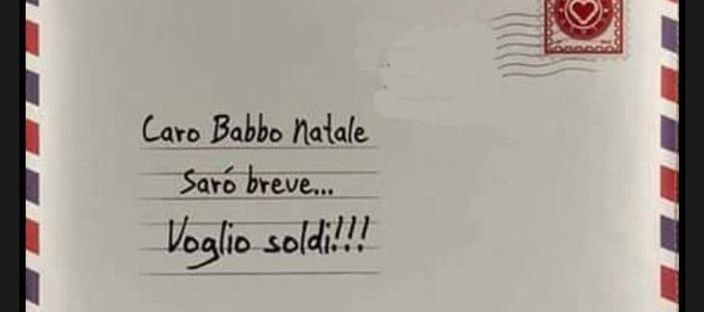 Caro Babbo Natale
Saró breve...
Voglio soldi!!!